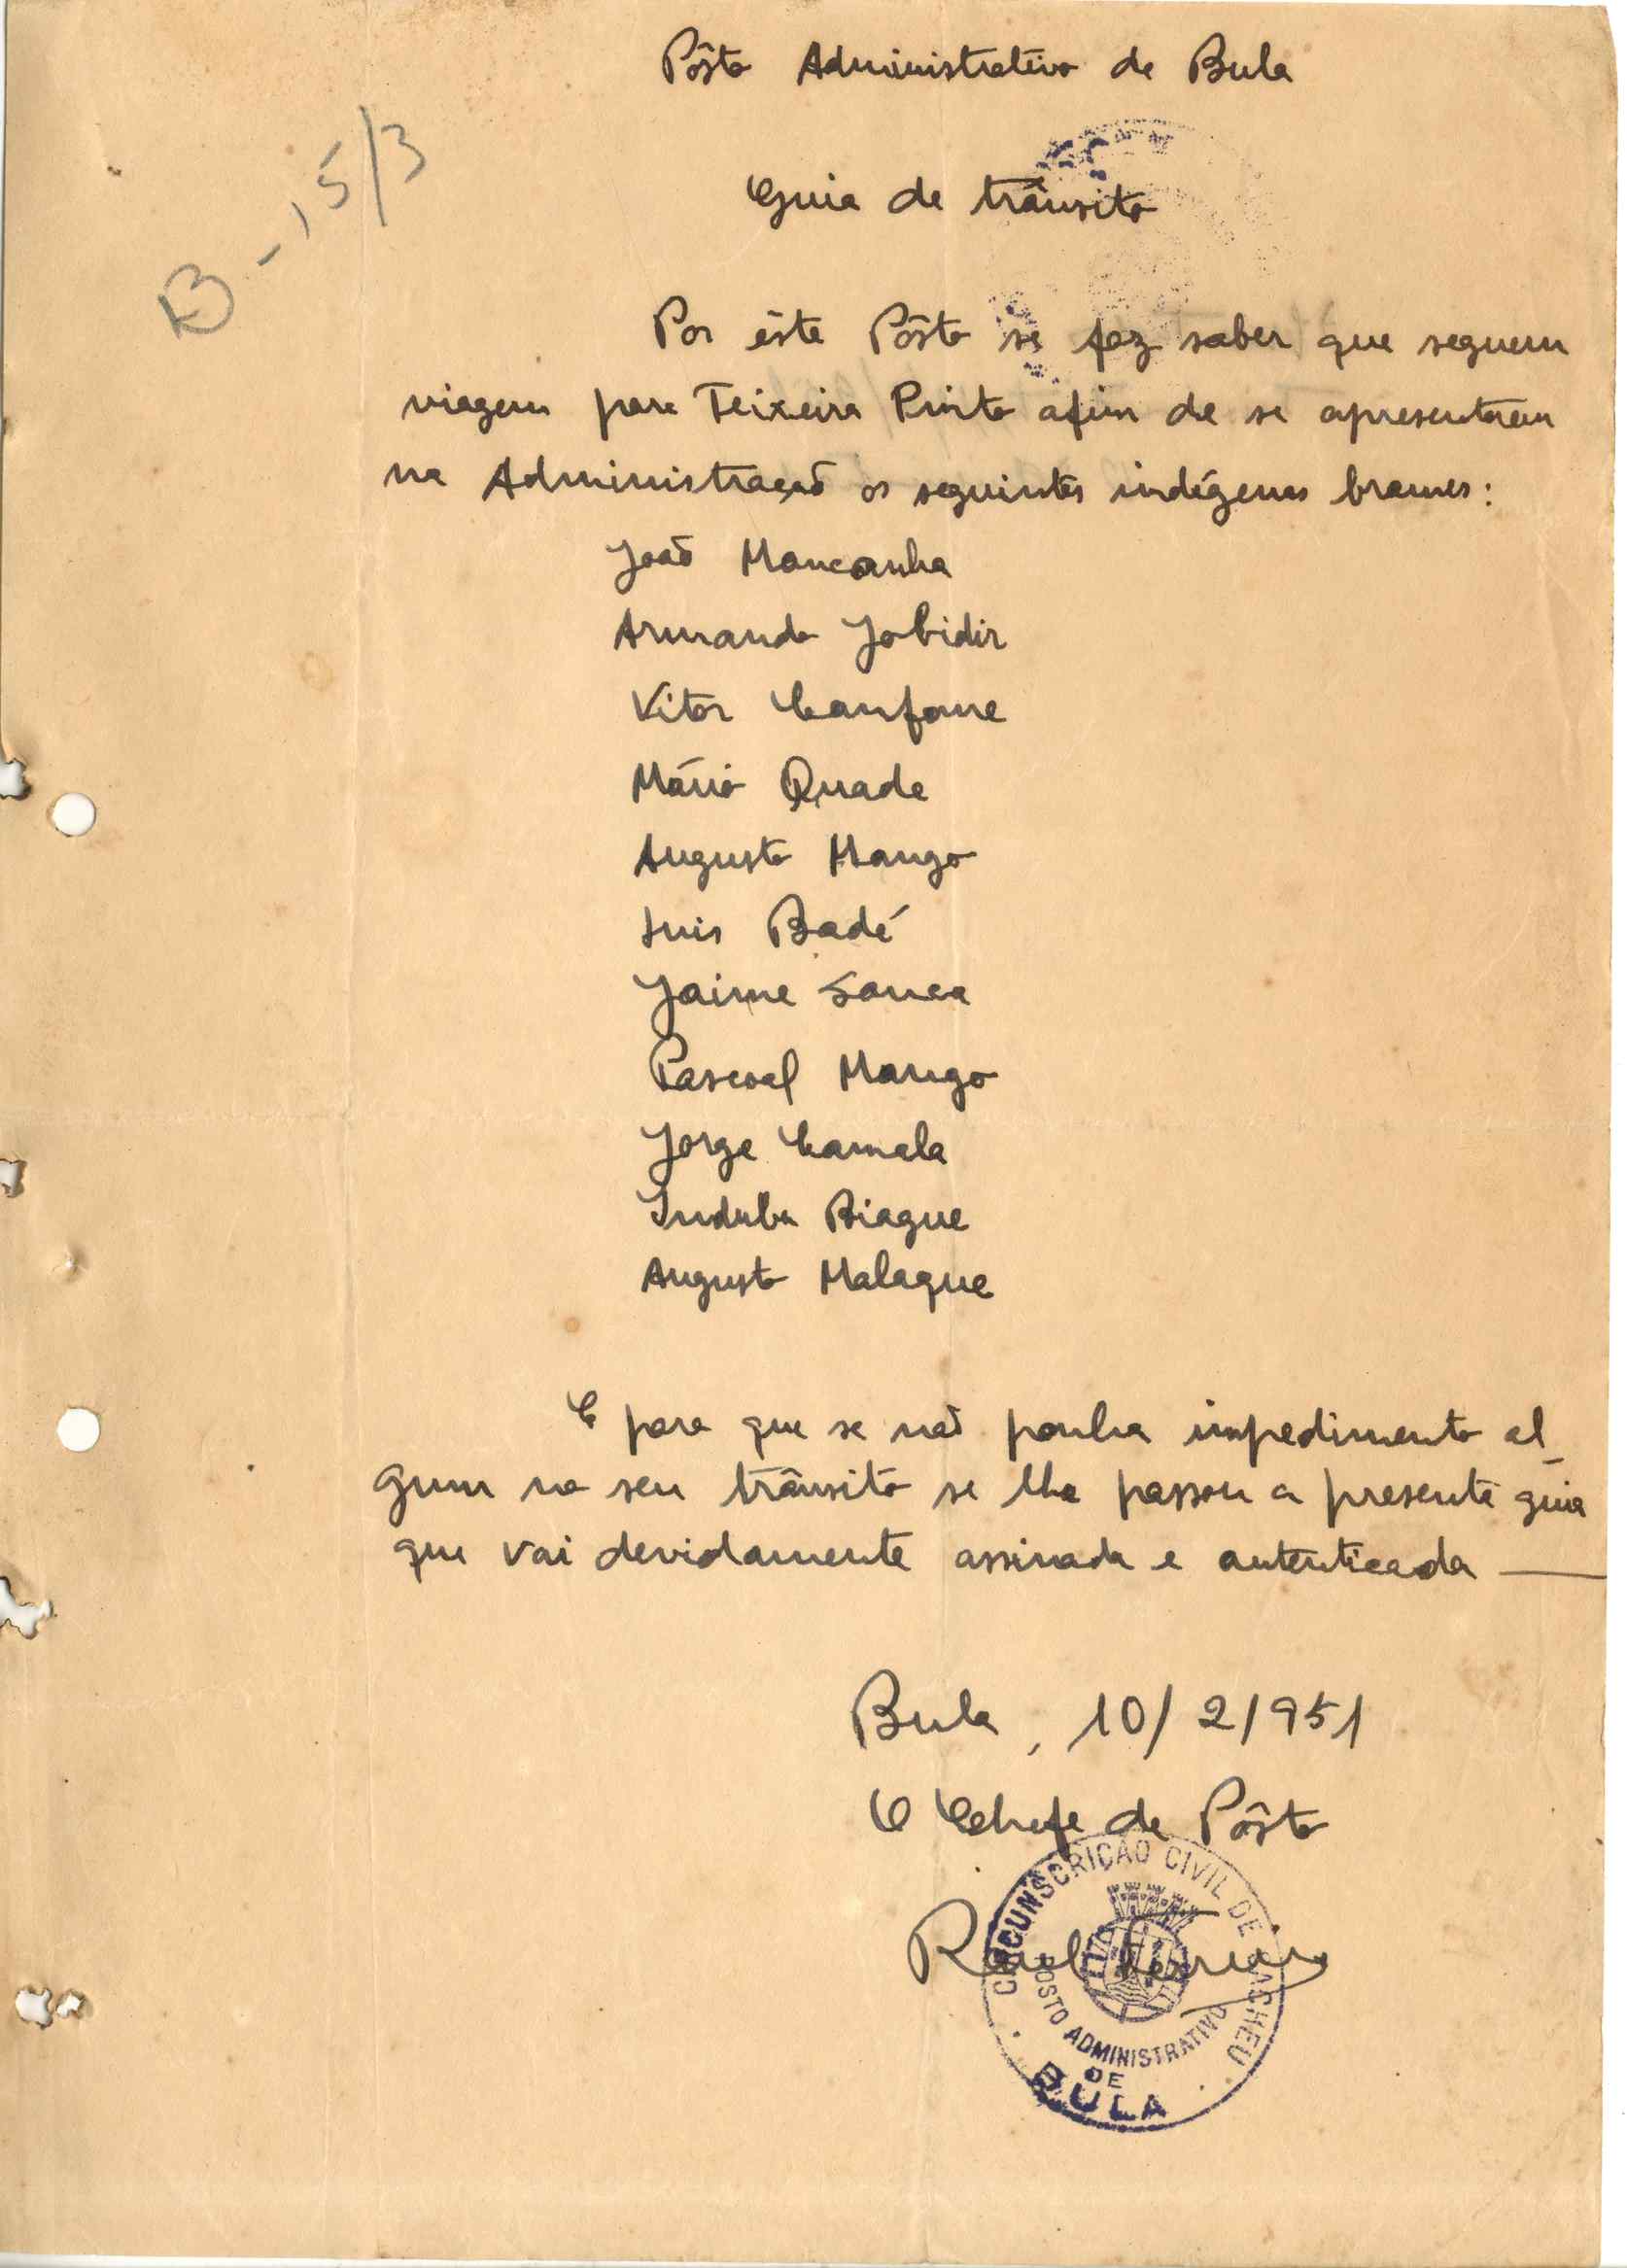 Pôsto Administrativo de Bula
B-15/3
Guia de trânsito
Por êste Pôsto se faz saber que seguem
viagem para Teixeira Pinto afim de se apresentarem
na Administração os seguintes indígenas brames:
João Mancanha
Armando Jobidir
Vitor Canfome
Mário Quade
Augusto Mango
Luis Badé
Jaime Sanca
Pascoal Mango
Jorge Camala
Induba Biague
Augusto Malague
E para que se não ponha impedimento al_
gum no seu trânsito se lhe passou a presente guia
que vai devidamente assinada e autenticada —
Bula, 10/2/951
O Chefe de Pôsto
CIRCUNSCRIÇÃO CIVIL DE CACHEU
POSTO ADMINISTRATIVO
DE
BULA